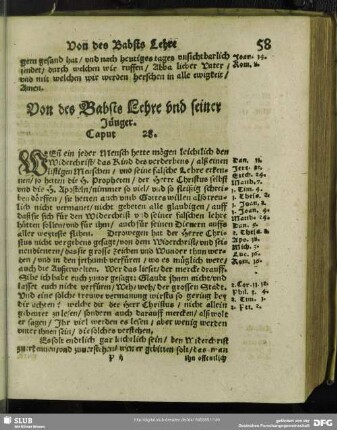 Von des Babsts Lehre 58
gern gesand hat / vnd noch heutiges tages vnsichtbarlich
sender / durch welchen wir ruffen / Abba lieber Vater /
vnd mit welchem wir werden herschen in alle ewigkeit /
Amen.
Joan. 14.
Rom. 8.
Von des Babsts Lehre vnd seiner
Jünger.
Caput 28.
WEñ ein jeder Mensch hette mögen leichtlich den
Widerchrist / das Kind des verderbens / als einen
listigen Menschen / vnd seine falsche Lehre erkennen /
so hetten die H. Propheten / der Herr Christus selbst
vnd die H. Aposteln / nimmer so viel / vnd so fleissig schreiben
dörffen / sie hetten auch vmb Gottes willen
nicht vermanet / nicht gebeten / nicht
das sie sich für den Widerchrist vnd seiner falschen lehre
hütten solten / vnd für jhm / auch für seinen Dienern auffs
aller weyteste flihen. Derwegen hat der Herr Christus
nicht vergebens gesagt / von dem Widerchrist / vnd seinen
dienern / das sie grosse zeichen vnd Wunder thun werden /
vnd in den jrrthumb verfüren / wo es müglich were /
auch die Ausserwelten. Wer das lieset / der mercke darauff.
Sihe ich habe euch zuuor gesagt: Glaubt jhnen nicht / vnd
lasset euch nicht verfüren / Weh / weh / der grossen Stadt.
Vnd eine solche trewe vermanung wirstu so gering bey
dir achten? welche dir der Herr Christus / nicht allein
gibet zu lesen / sondern auch darauff mercken / als wolt
er sagen / Ihr viel werden es lesen / aber wenig werden
vnter jhnen sein / die solches verstehen.
Es solt endtlich gar leichtlich sein / den Widerchrist
zuerkennen / vnd
P ij
Dan. 11.
Matth. 7.
1 Tim. 4.
2 Thess. 2.
1 Joan. 2.
1 Joan. 4.
Matth. 24.
Dan. 8.
2 Thess. 2.
Apo. 18.
Luc. 16.
Rom. 16.
2 Cor. 11.
Phil. 3.
2 Tim. 3.
2 Pet. 2.
SLUB
Wir führen Wissen.
gefördert von der
Deutschen Forschungsgemeinschaft
DFG